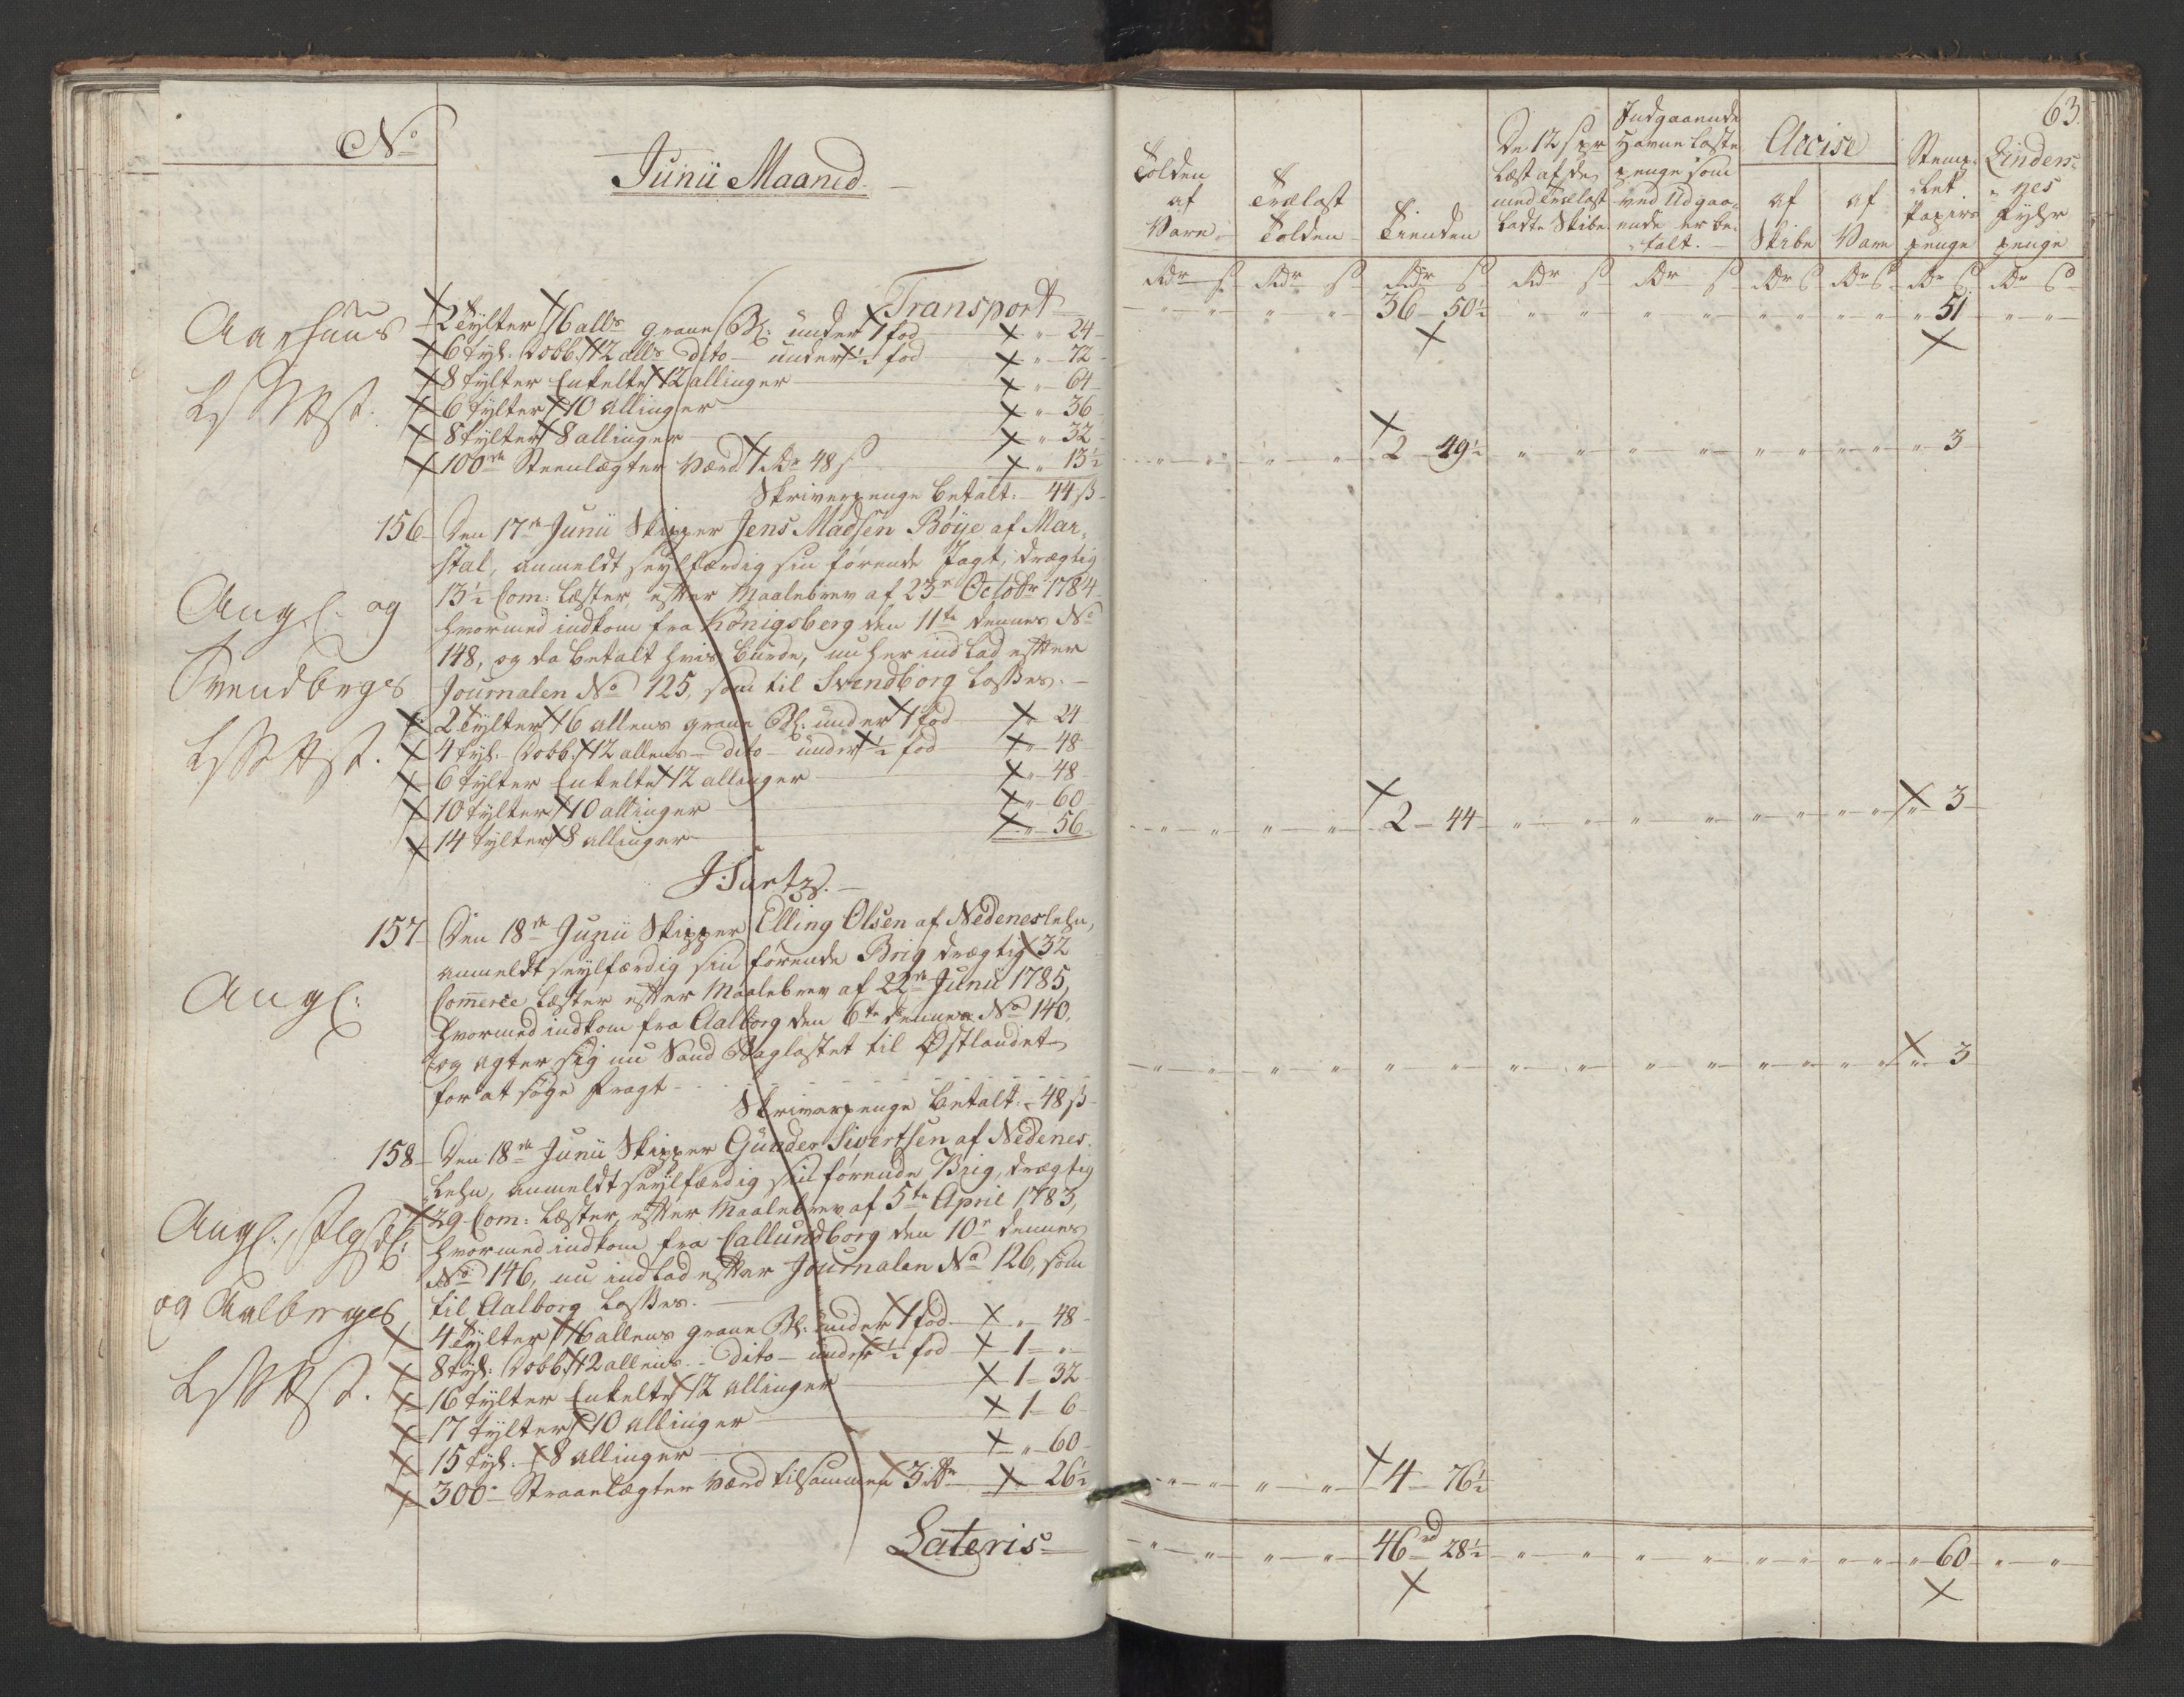 No
Junii Maaned.
Transport
Aarhuus
2 Tylter 16 all.s grane Bl: under 1 fod " 24
6 Tyl. Dobb. 12 all.s dito under ½ fod " 72
8 Tylter Enkelte 12 allinger " 64
6 Tylter 10 allinger " 36
8 Tylter 8 allinger " 32
100de Steenlægter værd 1 Rdr 48 s " 13½
Skriverpenge betalt: 44 ß
156 Den 17de Junii Skipper Jens Madsen Böÿe af Mar-
stal, anmeldt seylfærdig sin förende Jagt, drægtig
13½ Com: Læster efter Maalebrev af 23de Octobr 1784
hvormed indkom fra Königsberg den 11te dennes No
148, og da betalt hvis burde, nu her indlad efter
Journalen No 125, som til Svendborg losses.
Angl: og
Svendborgs
2 Tylter 16 allens grane Bl: under 1 fod " 24
4 Tyl. Dobb. 12 allens dito under ½ fod " 48
6 Tylter Enkelte 12 allinger " 48
10 Tylter 10 allinger " 60
14 Tylter 8 allinger " 56
157 Den 18de Junii Skipper Elling Olsen af Nedenes Lehn,
anmeldt seylfærdig sin förende Brig drægtig 32
Commerce Læster efter Maalebrev af 22de Junii 1785,
hvormed indkom fra Aalborg den 6te dennes No 140,
og agter sig nu Sand Baglastet til Östlandet
for at söge fragt
Angl:
Skriverpenge betalt: 48 ß
158 Den 18de Junii Skipper Gunder Sivertsen af Nedenes
Lehn, anmeldt seylfærdig sin förende Brig, drægtig
29 Com: Læster, efter Maalebrev af 5te April 1783,
hvormed indkom fra Callundborg den 10de dennes
No 146, nu indlad efter Journalen No 126, som
til Aalborg losses.
Angl:
og Aalborgs
4 Tylter 16 allens grane Bl: under 1 fod " 48
8 Tyl: Dobb. 12 allens dito under ½ fod 1 "
16 Tylter Enkelte 12 allinger 1 32
17 Tylter 10 allinger 1 6
15 Tyl. 8 allinger " 60
300de Straaelægter værd tilsammen 3 Rdr 26½
Lateris
63.
Tolden
af
Vare
Trælast
Tolden
Tienden
De 12 s pr
Læst af de
med Trælast
ladte Skibe
Indgaaende
Havne Laste
penge som
ved Udgaa-
ende er be-
talt.
Accise
af
Skibe
af
Vare
Stemp-
let
Papirs
penge
Rdr s Rdr s Rdr s Rdr s Rdr s Rdr s Rdr s Rdr s Rdr s
36 50½ 51
2 49½ 3
2 44 3
3
4 76½
46 28½ 60